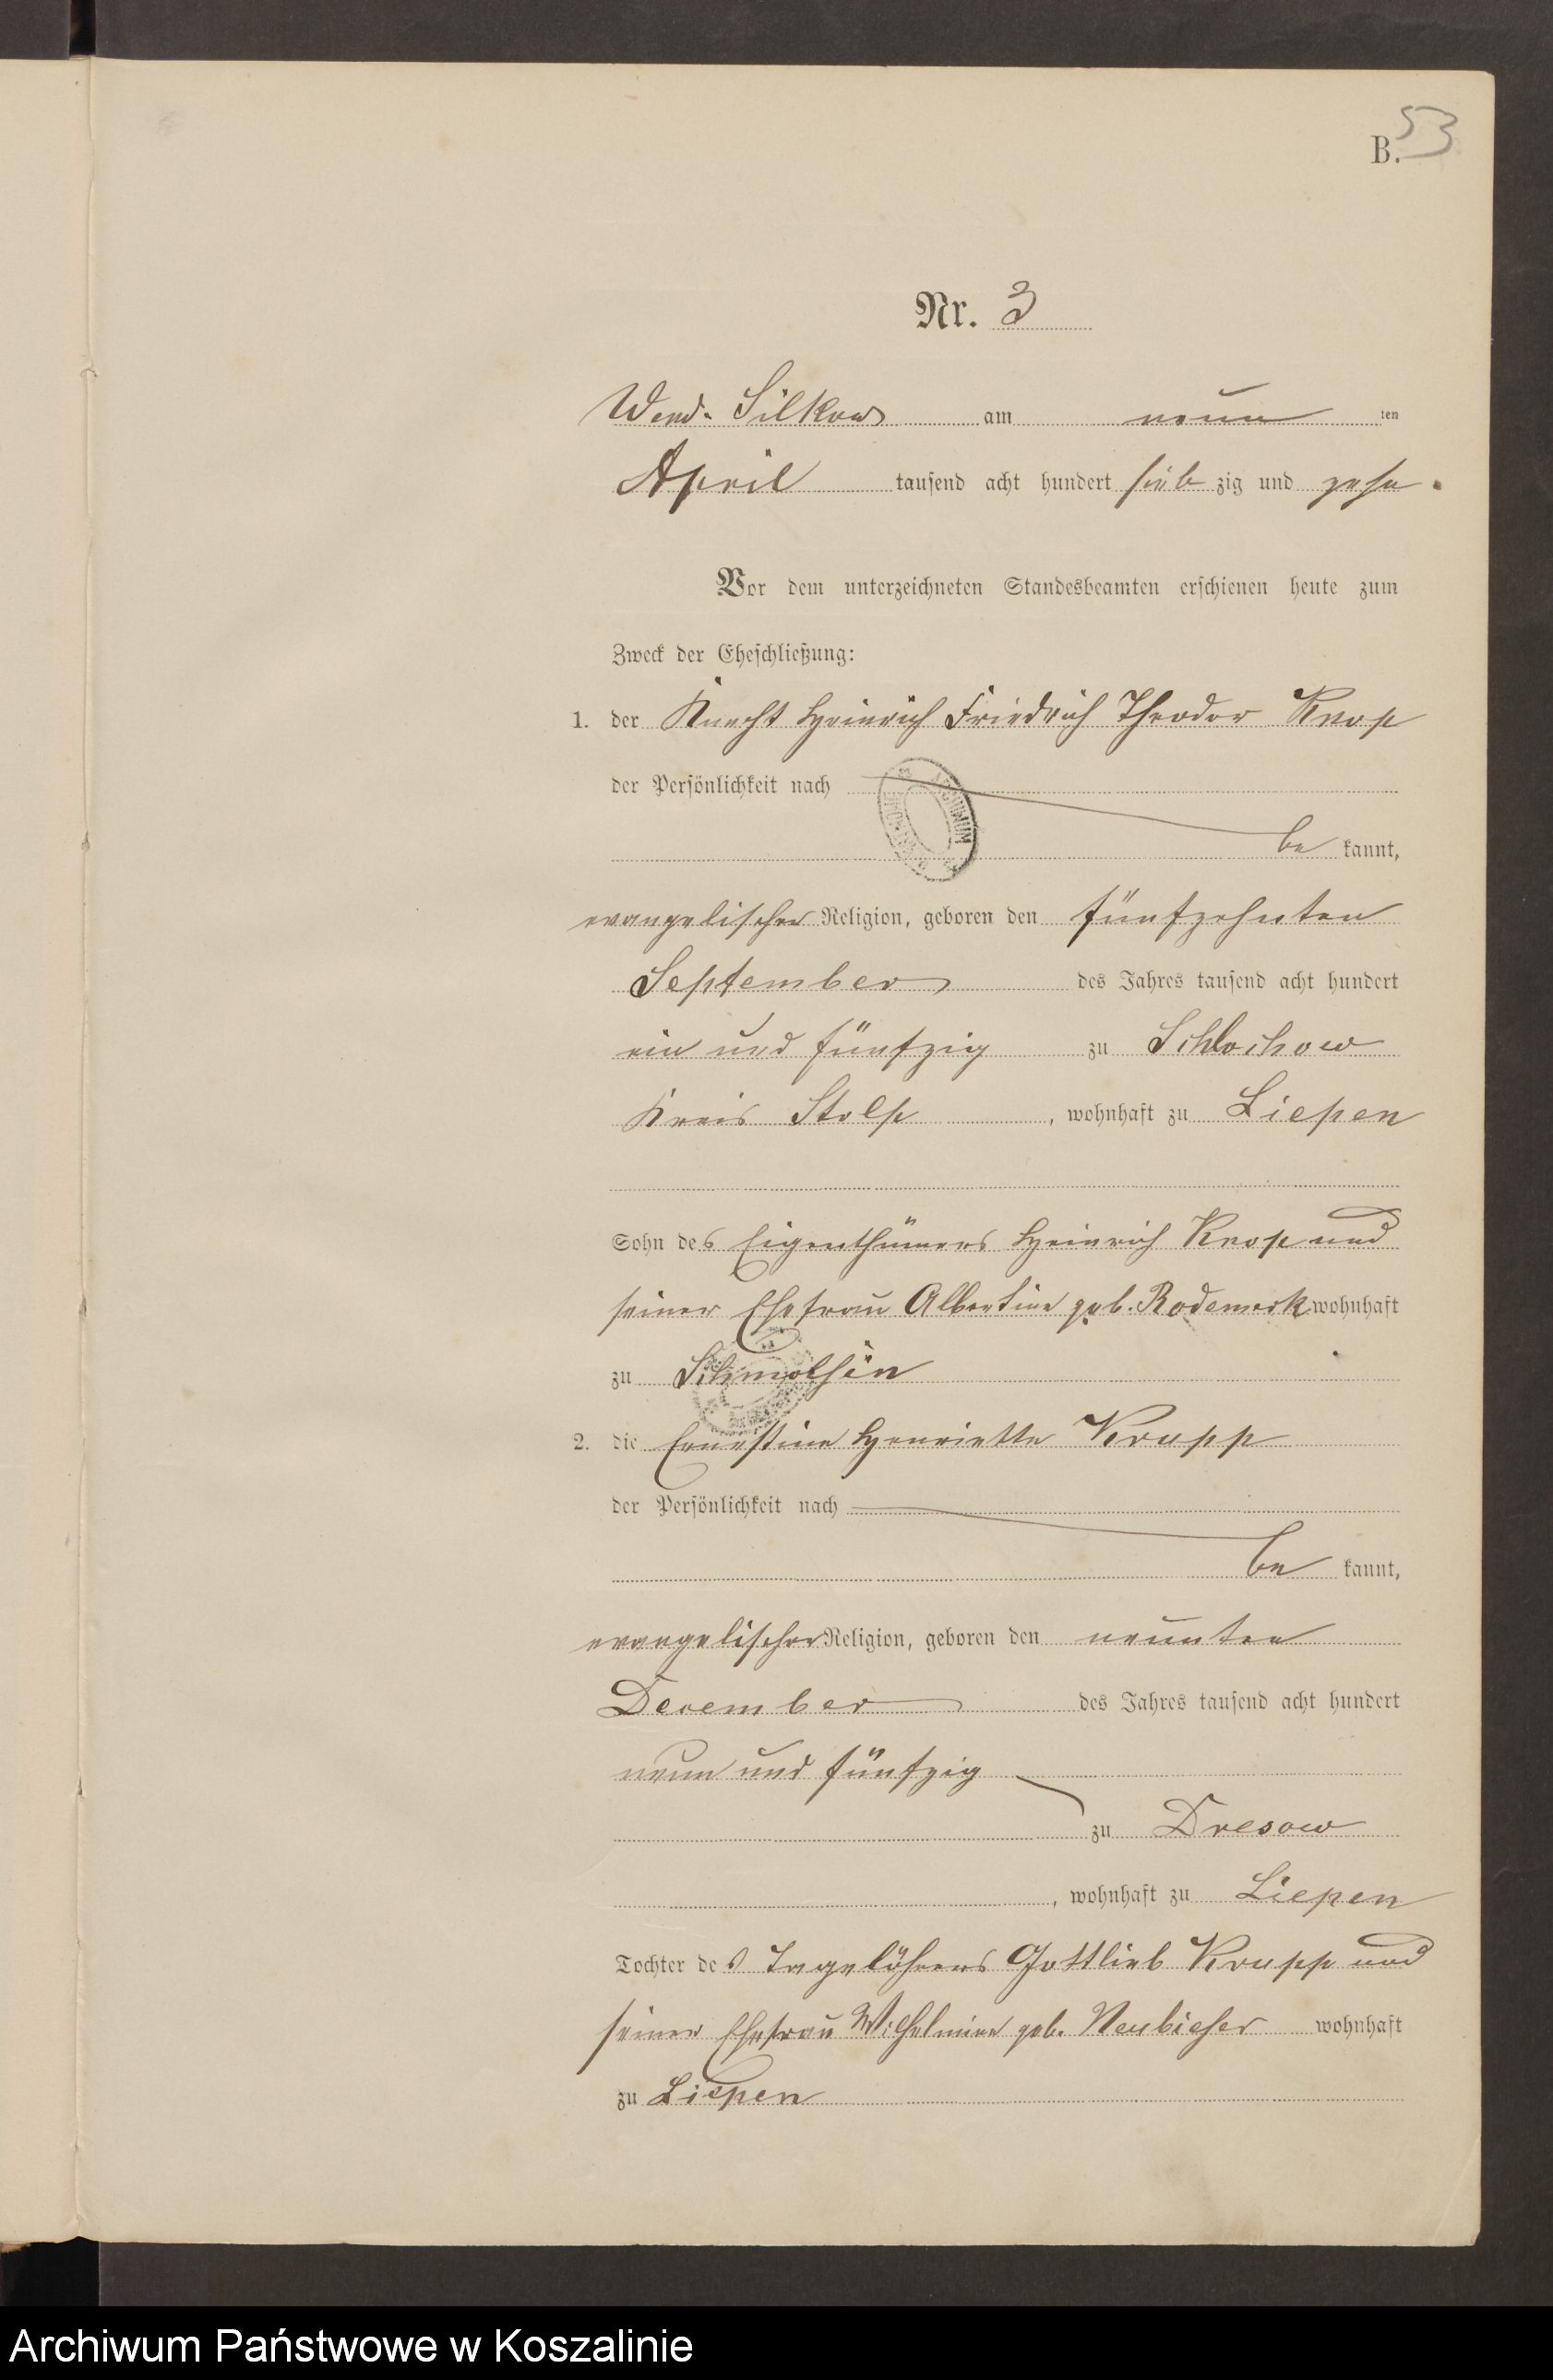 B. 53
Nr. 3
Wend. Silkow am neun ten
April tausend acht hundert sieb zig und zehn.
Vor dem unterzeichneten Standesbeamten erschienen heute zum
Zweck der Eheschließung:
1. der Knecht Heinrich Friedrich Theodor Knop
der Persönlichkeit nach
be kannt,
evangelischer Religion, geboren den fünfzehnten
September des Jahres tausend acht hundert
ein und fünfzig zu Schlochow
Kreis Stolp, wohnhaft zu Liepen
Sohn des Eigenthümers Heinrich Knop und
seiner Ehefrau Albertine geb. Rodemerk wohnhaft
zu Schmolsin
2. die Ernestine Henriette Krupp
der Persönlichkeit nach
be kannt,
evangelischer Religion, geboren den neunten
December des Jahres tausend acht hundert
neun und fünfzig
zu Dresow
, wohnhaft zu Liepen
Tochter des Tagelöhners Gottlieb Krupp und
seiner Ehefrau Wilhelmine geb. Neubieser wohnhaft
zu Liepen
Archiwum Państwowe w Koszalinie